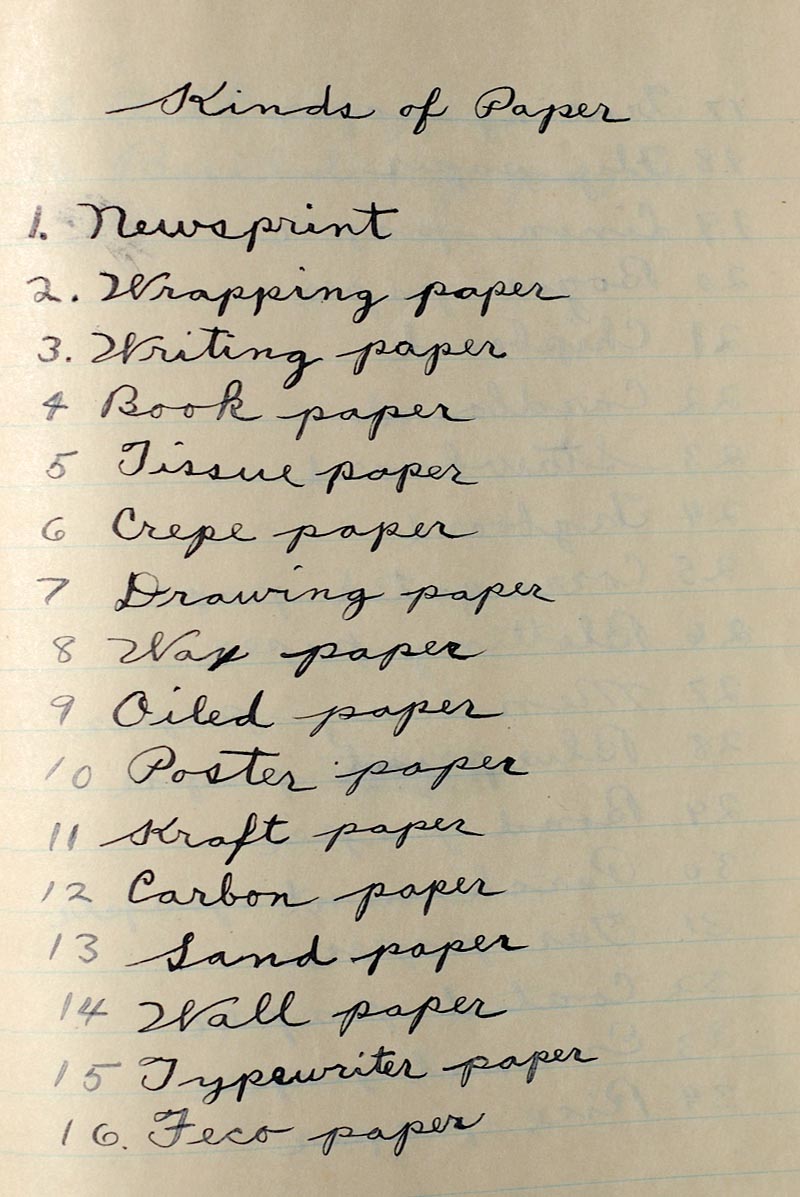 Kinds of Paper
1. Newsprint
2. Wrapping paper
3. Writing paper
4 Book paper
5 Tissue paper
6 Crepe paper
7 Drawing paper
8 Wax paper
9 Oiled paper
10 Poster paper
11 Kraft paper
12 Carbon paper
13 Sand paper
14 Wall paper
15 Typewriter paper
16. Feco paper